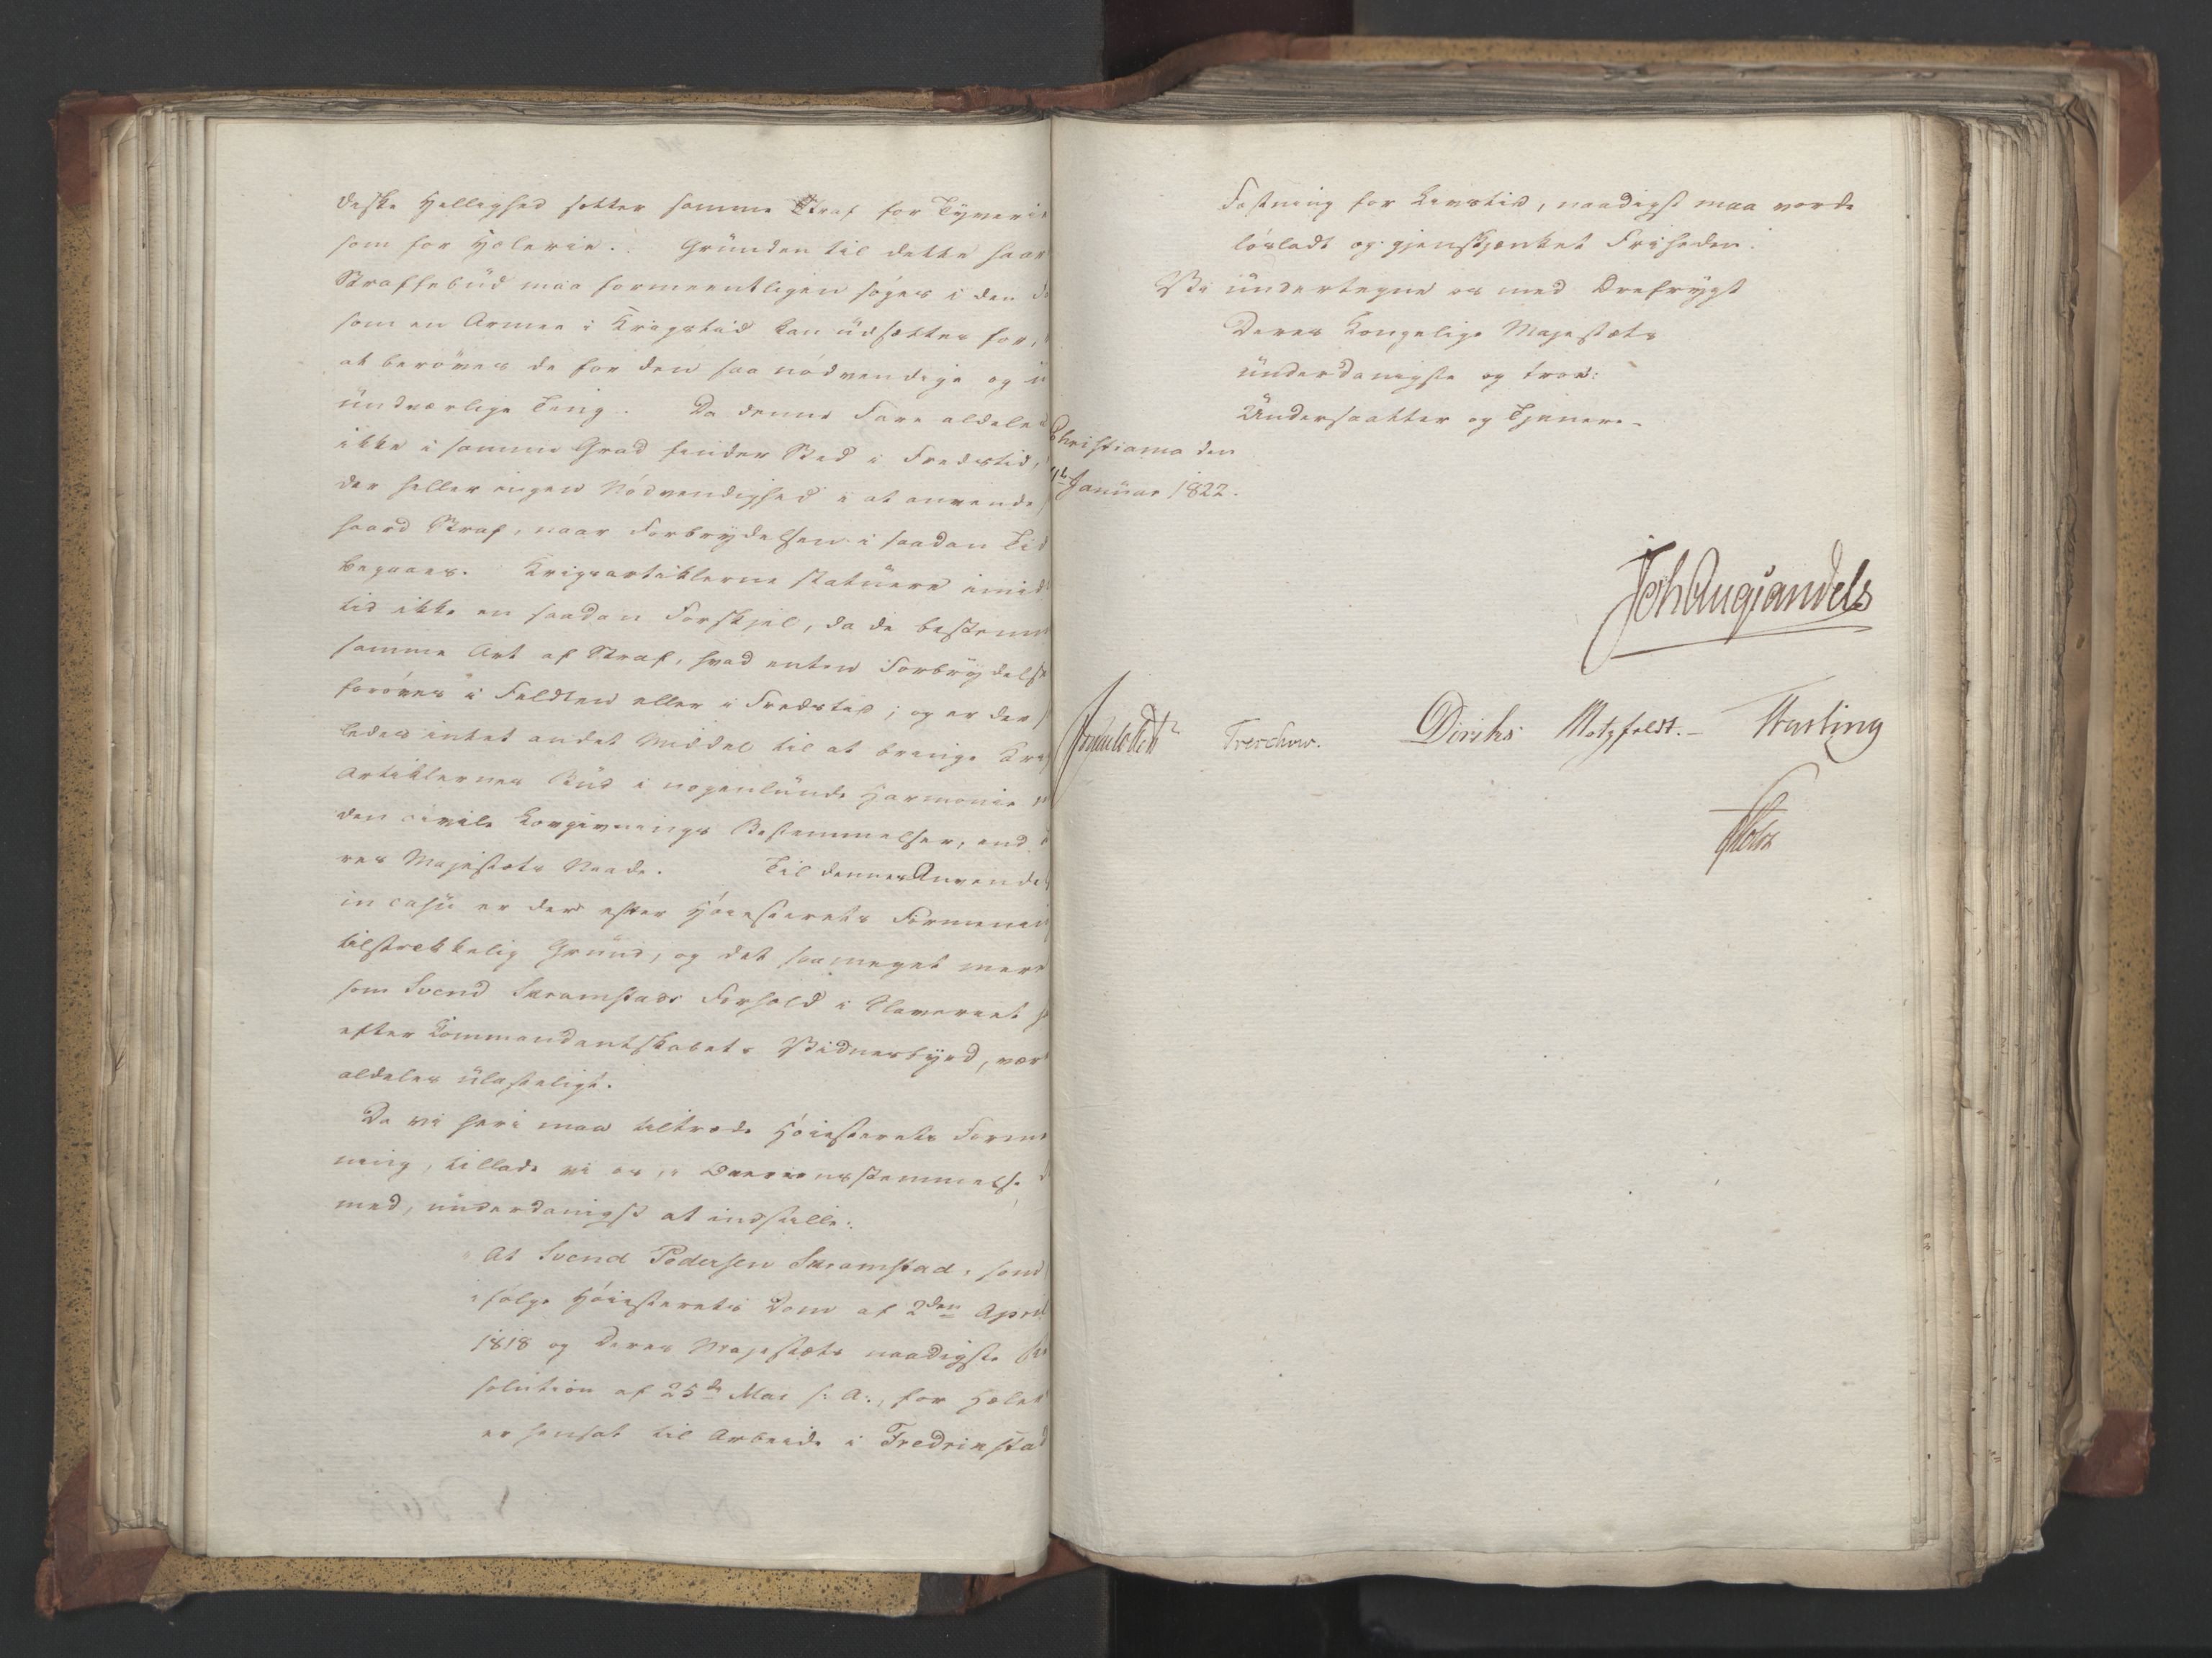 deske Hellighed sætter samme Straf for Tyverie
som for Hælerie. Grunden til dette haar
Straffebud maa formeentligen søges i den
som en Armee i Krigstid kan udsættes for,
at berøves de for den saa nødvendige og
undværlige Ting. Da denne Fare aldeles
ikke i samme Grad finder Sted i Fredstid,
der heller ingen Nødvendighed i at anvende
haard Straf, naar Forbrydelsen i saadan Tid
begaaes. Krigsartiklerne statuere imid
tid ikke en saadan Forskjel, da de bestemme
samme Art af Straf, hvad enten Forbrydelse
forøves i Feldten eller i Fredstid; og er der
ledes intet andet Middel til at bringe Krigs
Artiklernes Bud i nogenlunde Harmonie
den civile Lovgivnings Bestemmelser, end
res Majestæts Naade. Til dennes Anvendelse
in casu er der efter Høiesterets Formening
tilstrækkelig Grund, og det saameget mere
som Svend Skramstads Forhold i Slaveriet
efter Kommandantskabets Vidnesbyrd, være
aldeles ulasteligt.
Da vi heri maa tiltræde Høiesterets Forme
ning, tillade vi os, i Overeensstemmelse
med, underdanigst at indstille:
At Svend Pedersen Skramstad, som
ifølge Høiesterets Dom af 2den April
1818 og Deres Majestæts naadigste Re
solution af 25de Mai s. A., for Hæleri
er hensat til Arbeide i Fredrikstad
Fæstning for Livstid, naadigst maa vorde
løsladt og gjenskjænket Friheden.
Vi undertegne os med Ærefrygt
Deres Kongelige Majestæts
underdanigste og troe:
Undersaatter og Tjenere.
Christiania den
Januar 1822.
Joh Aug Sandels
Sommerfeldt
Treschow.
Diriks
Motzfeldt.
Fasting
Holst